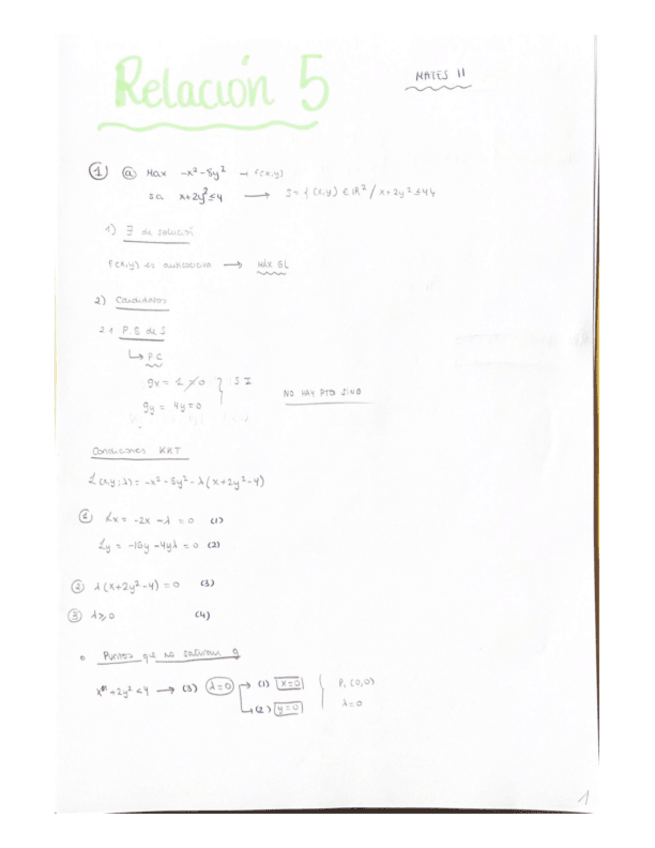 Relación 5
MATES II
① ⓐ Max -x²-8y² → f(x,y)
s.a. x+2y²≤4 → S={(x,y) ∈ ℝ² / x+2y²≤4}
1) ∃ de solución
f(x,y) es → MÁX GL
2) Candidatos
2.1 P.S de S
↳ P.C
gx = 1 ≠ 0 } S I
gy = 4y = 0
NO HAY PTO SING
Condiciones KKT
L(x,y;λ) = -x²-8y²-λ(x+2y²-4)
① Lx = -2x -λ = 0 (1)
Ly = -16y -4yλ = 0 (2)
② λ(x+2y²-4) = 0 (3)
③ λ≥0 (4)
Puntos que no saturan g
x+2y²<4 → (3) λ=0 → (1) x=0 } P₁(0,0)
↳ (2) y=0 λ=0
1